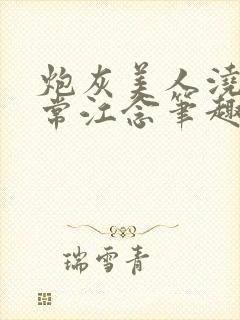 炮灰美人浇
常江念笔趣
瑞雪青